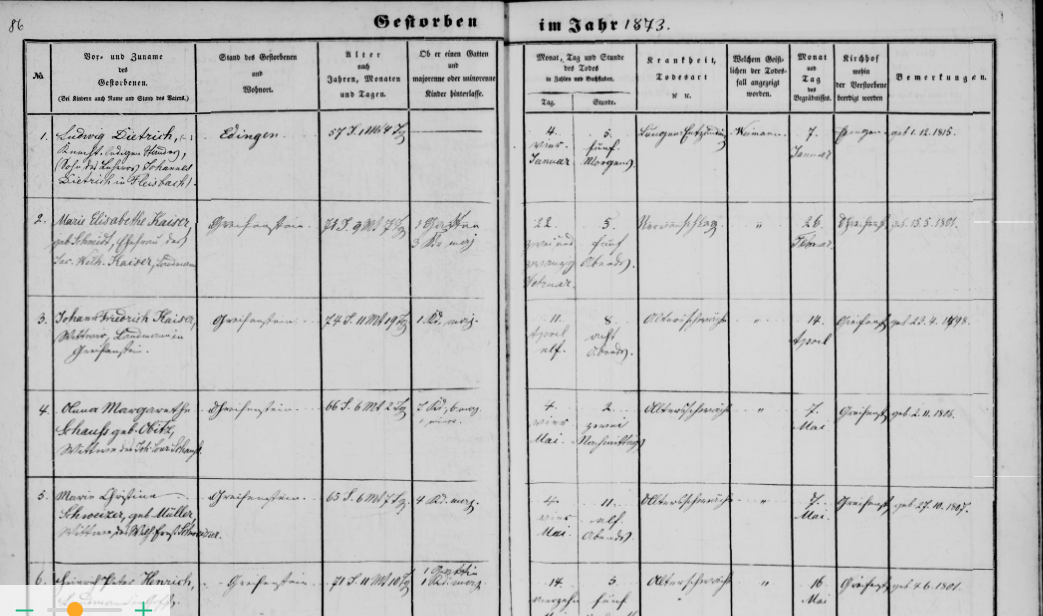 86
Gestorben im Jahr 1873.
№
Vor- und Zuname
des
Gestorbenen.
(Bei Kindern auch Name und Stand des Vaters.)
Stand des Gestorbenen
und
Wohnort.
Alter
nach
Jahren, Monaten
und Tagen.
Ob er einen Gatten
und
majorenne oder minorenne
Kinder hinterlasse.
Monat, Tag und Stunde
des Todes
in Zahlen und Buchstaben.
Tag.
Stunde.
Krankheit,
Todesart
Welchem Geist-
lichen der Todes-
fall angezeigt
worden.
Monat
und
Tag
des
Begräbnisses.
Kirchhof
wohin
der Verstorbene
beerdigt worden
Bemerkungen.
1.
Ludwig Dietrich,
Knecht, ledigen Standes,
(Sohn des Johannes
Dietrich in Fleisbach)
Edingen
57 J. 1 Mt 4 Tg
4.
vier
Januar
5.
fünf
Morgens
Lungen Entzündung
7.
Januar
geb 1.12.1815.
2.
Marie Elisabethe Kaiser,
geb Schmidt, Ehefrau des
Kaiser, Landmann
Greifenstein
3 Kd. maj
22
zwei und
zwanzig
Februar.
5.
fünf
Abends.
Nervenschlag
"
26
geb. 15.5.1801.
3.
Johann Friedrich Kaiser,
Wittwer, Landmann in
Greifenstein.
Greifenstein
74 J. 11 Mt 19 Tg
1 Kd. maj.
11.
April
elf.
8.
acht
Abends.
Altersschwäche
"
14.
April
Greifenst
geb 23.4.1798.
4.
Anna Margarethe
Schauss geb. Obitz,
Wittwe des Joh. Schauss.
Greifenstein
66 J. 6 Mt 2 Tg
7 Kd, 6 maj
1 min.
4.
vier
Mai.
2.
zwei
Nachmittags
Altersschwäche
"
7.
Mai
Greifenst
geb 2.11.1806.
5.
Marie Christine
Schweizer, geb Müller
Wittwe des
Greifenstein
65 J. 6 Mt 7 Tg.
4 Kd. maj.
4.
vier
Mai.
11.
elf.
Abends.
Altersschwäche
"
7.
Mai.
Greifenst
geb. 27.10.1807.
6.
Heinrich Peter Henrich,
Greifenstein
71 J. 11 Mt 10 Tg
1 Gattin
1 Kd. maj.
14.
vierzehn
5.
fünf
Altersschwäche
"
16
Mai
Greifenst
geb 4.6.1801.